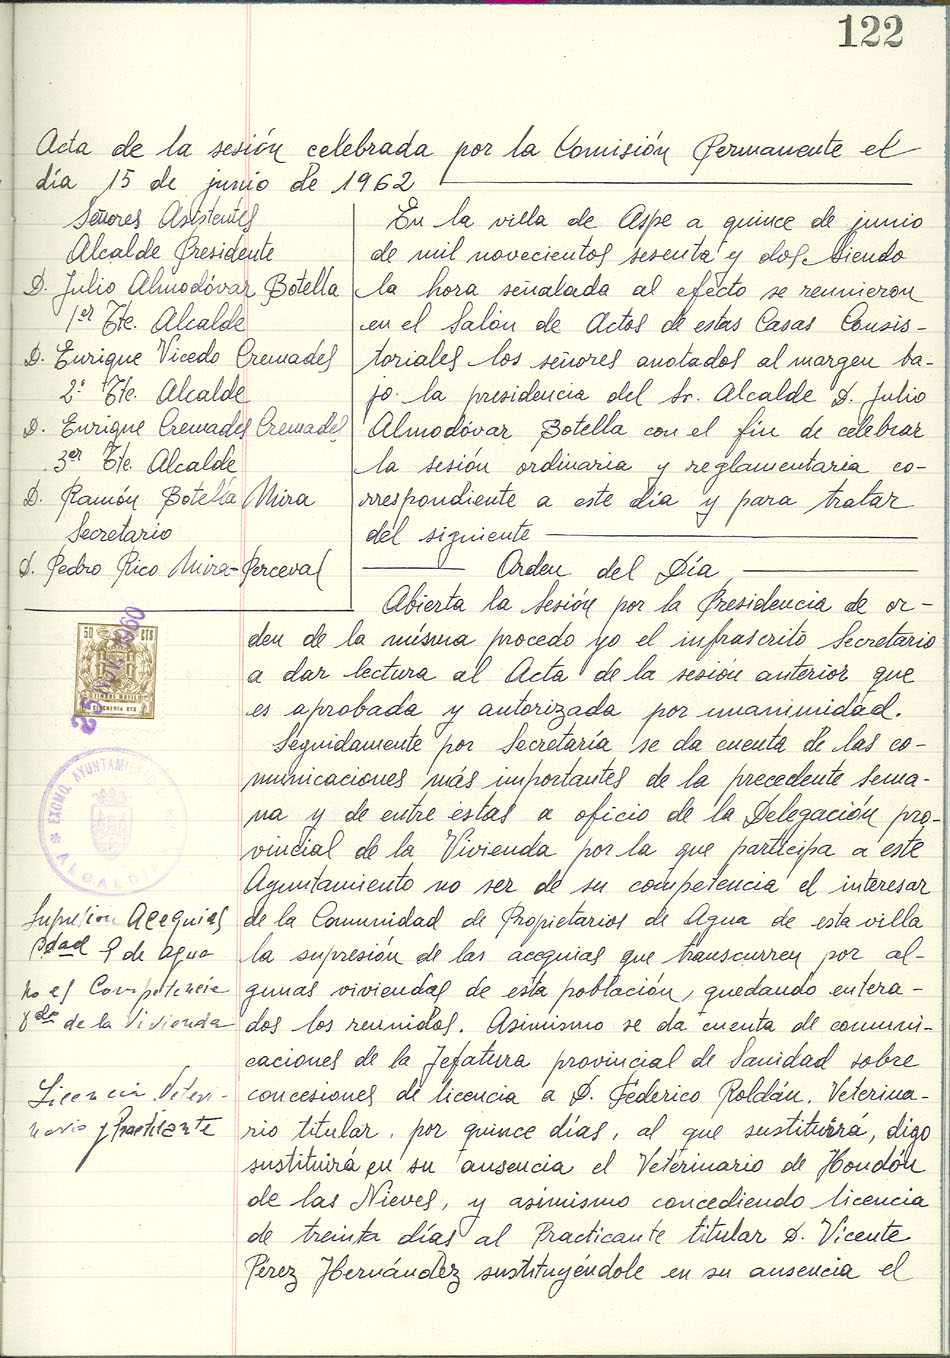 122
Acta de la sesión celebrada por la Comisión Permanente el
día 15 de junio de 1962
Señores Asistentes
Alcalde Presidente
D. Julio Almodóvar Botella
1er Tte. Alcalde
D. Enrique Vicedo Cremades
2º Tte. Alcalde
D. Enrique Cremades Cremades
3er Tte. Alcalde
D. Ramón Botella Mira
Secretario
D. Pedro Rico Mira-Perceval
En la villa de Aspe a quince de junio
de mil novecientos sesenta y dos. Siendo
la hora señalada al efecto se reunieron
en el Salón de Actos de estas Casas Consis-
toriales los señores anotados al margen ba-
jo la presidencia del Sr. Alcalde D. Julio
Almodóvar Botella con el fin de celebrar
la sesión ordinaria y reglamentaria co-
rrespondiente a este día y para tratar
del siguiente
Orden del Día
Abierta la Sesión por la Presidencia de or-
den de la misma procedo yo el infrascrito Secretario
a dar lectura al Acta de la sesión anterior que
es aprobada y autorizada por unanimidad.
Seguidamente por Secretaría se da cuenta de las co-
municaciones más importantes de la precedente sema-
na y de entre estas a oficio de la Delegación pro-
vincial de la Vivienda por la que participa a este
Ayuntamiento no ser de su competencia el interesar
de la Comunidad de Propietarios de Agua de esta villa
la supresión de las acequias que transcurren por al-
gunas viviendas de esta población, quedando entera-
dos los reunidos. Asimismo se da cuenta de comuni-
caciones de la Jefatura provincial de Sanidad sobre
concesiones de licencia a D. Federico Roldán, Veterina-
rio titular, por quince días, al que sustituirá, digo
sustituirá en su ausencia el Veterinario de Hondón
de las Nieves, y asimismo concediendo licencia
de treinta días al Practicante titular D. Vicente
Pérez Hernández sustituyéndole en su ausencia el
50 CTS
TIMBRE MOVIL
CINCUENTA CTS
25 NOV. 1960
EXCMO. AYUNTAMIENTO
ALCALDIA
Supresion Acequias
Cdad P de agua
no es Competencia
de la Vivienda
Licencia Veteri-
nario y Practicante